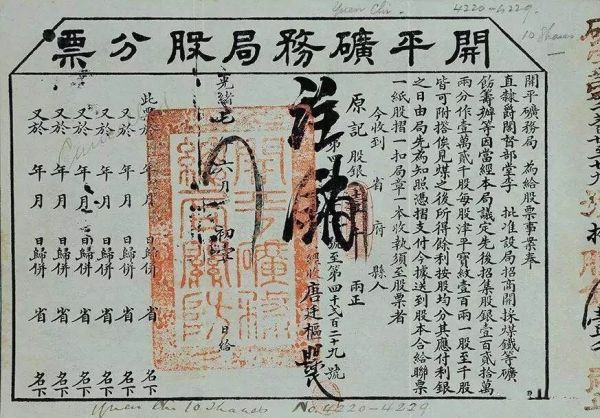 Yuen Chi. 4220-4229
10 Shares
開平礦務局股分票
開平礦務局 為給股票事案奉
直隸爵閣督部堂李 批准設局招商開採煤鐵等礦
飭籌辦等因當經本局議定先後招集股銀壹百貳拾萬
兩分作壹萬貳千股每股津平寶紋壹百兩一股至千股
皆可附搭俟見煤之後所得餘利按股均分其應付利銀
之日由局先為知照憑摺支付今據送到股本合給聯票
一紙股摺一扣局章一本收執須至股票者
今收到 省 府 縣人
原記 股銀 兩正
註銷
第四 號至第四千貳百二十九號
經收唐廷樞
光緒七 六月 初 日給
此票於 年 月 日歸併 省 名下
又於 年 月 日歸併 省 名下
又於 年 月 日歸併 省 名下
又於 年 月 日歸併 省 名下
又於 年 月 日歸併 省 名下
又於 年 月 日歸併 省 名下
Yuen Chi 10 Shares No. 4220-4229